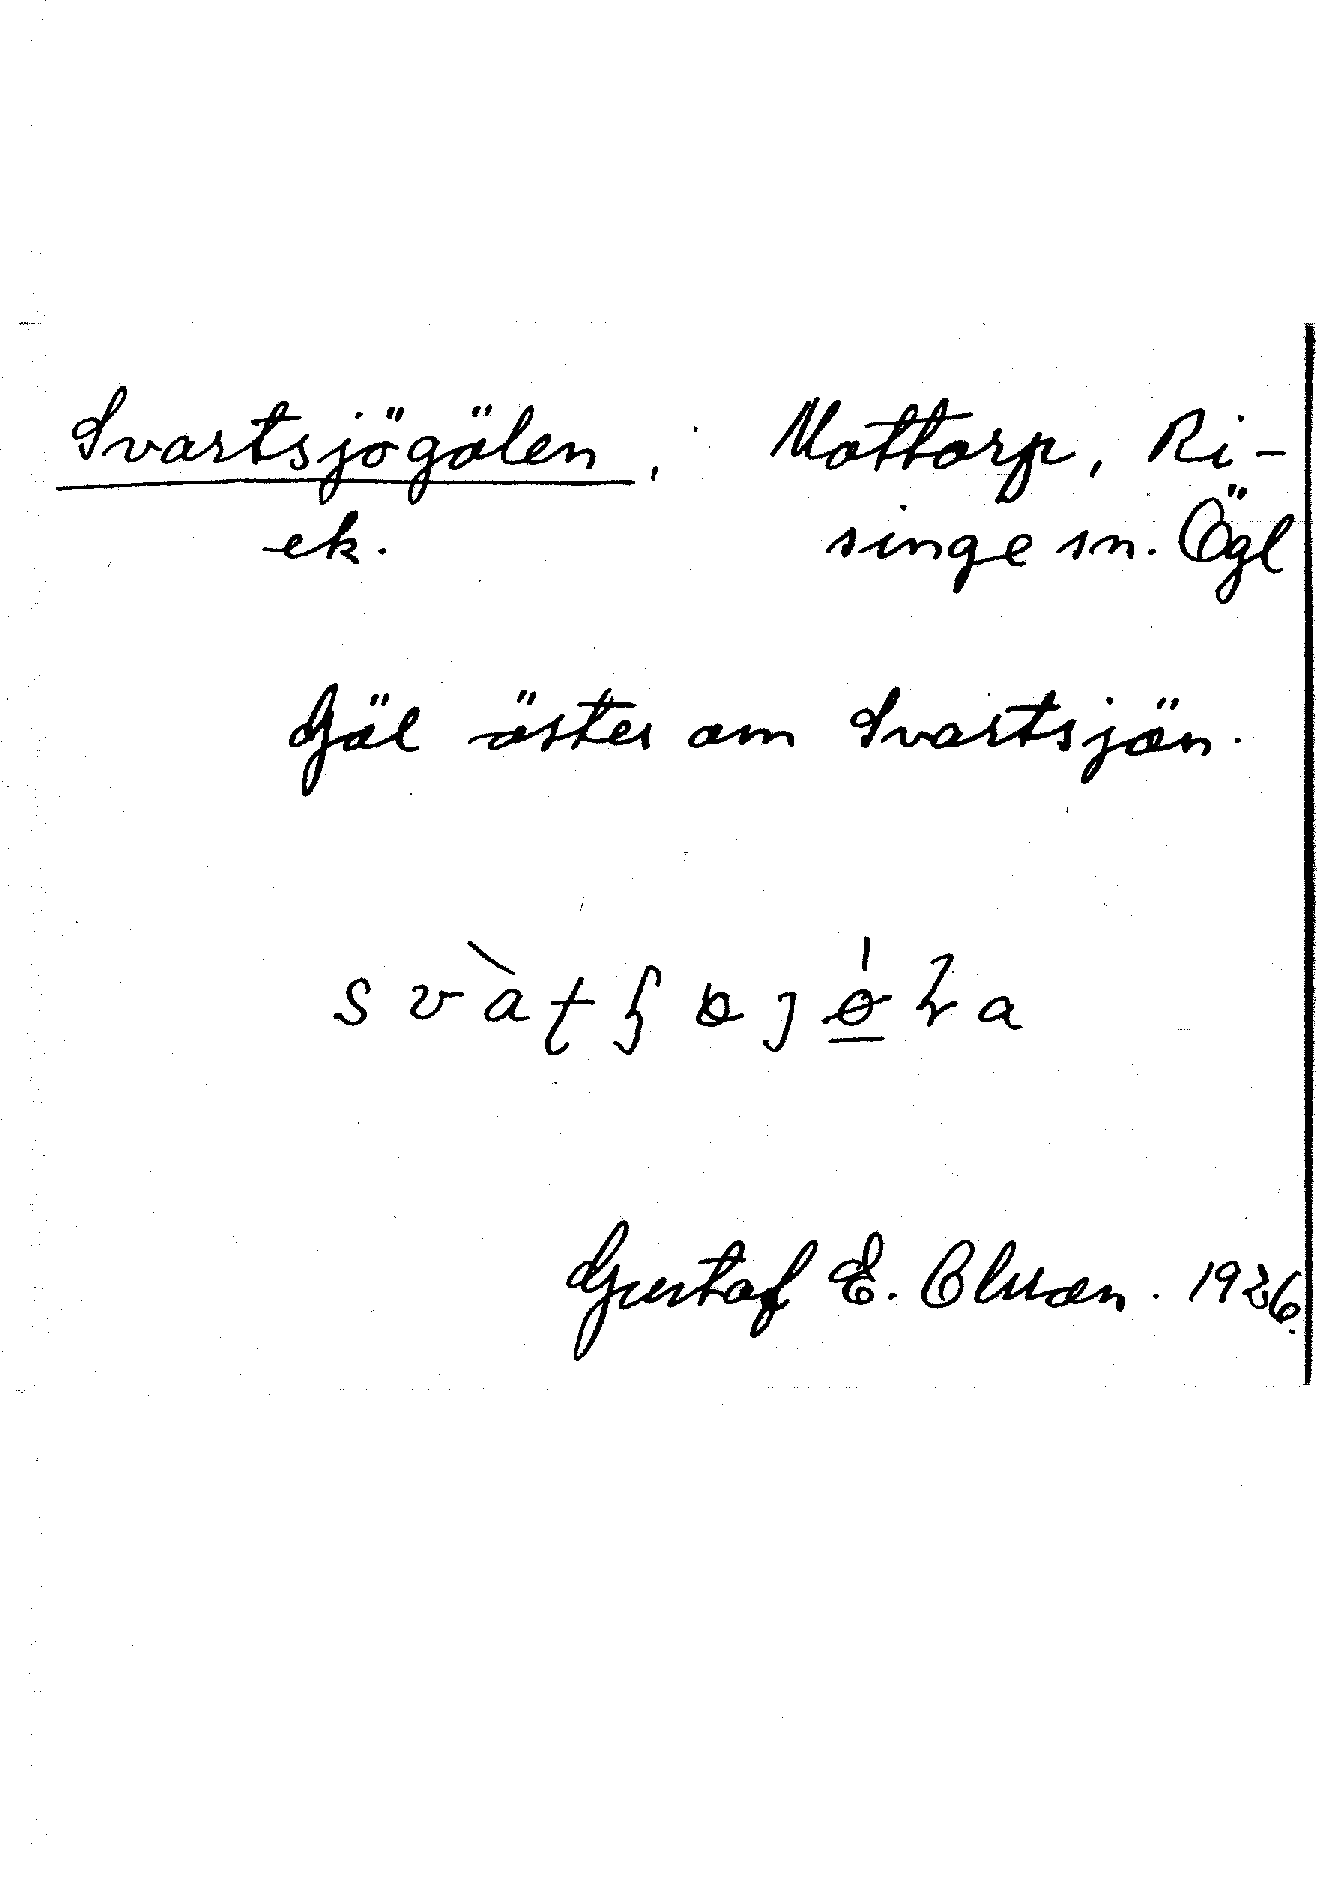 Svartsjögölen, Mottorp, Ri-
ek. singe sn. Ögl
Göl öster om Svartsjön.
Gustaf E. Olsson. 1926.